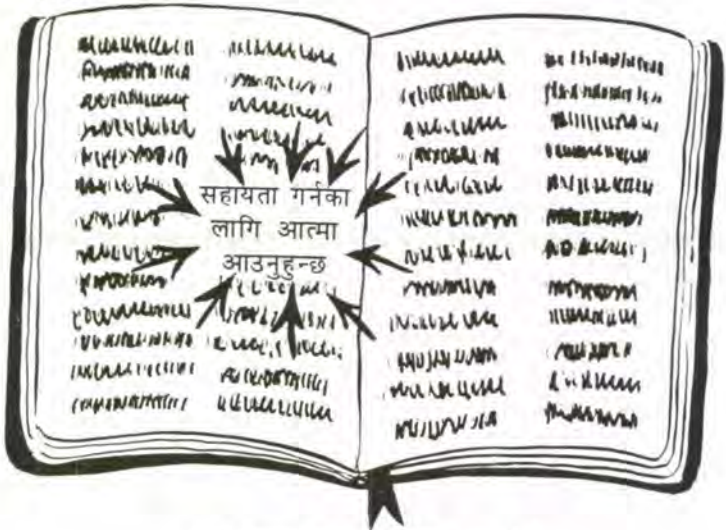 सहायता गर्नका
लागि आत्मा
आउनुहुन्छ